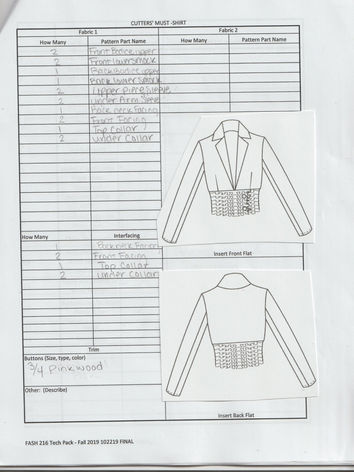 CUTTERS' MUST -SHIRT
Fabric 1 Fabric 2
How Many Pattern Part Name How Many Pattern Part Name
2 Front Bodice upper
2 Front lower smock
1 Back Bodice upper
1 Back lower smock
2 Upper piece sleeve
2 Under Arm Sleeve
1 Back neck Facing
2 Front Facing
1 Top Collar
2 under Collar
How Many Interfacing
1 Back neck Facing
2 Front Facing
1 Top Collar
2 under Collar
Insert Front Flat
Trim
Buttons (Size, type, color)
3/4 Pink wood
Other: (Describe)
Insert Back Flat
FASH 216 Tech Pack - Fall 2019 102219 FINAL